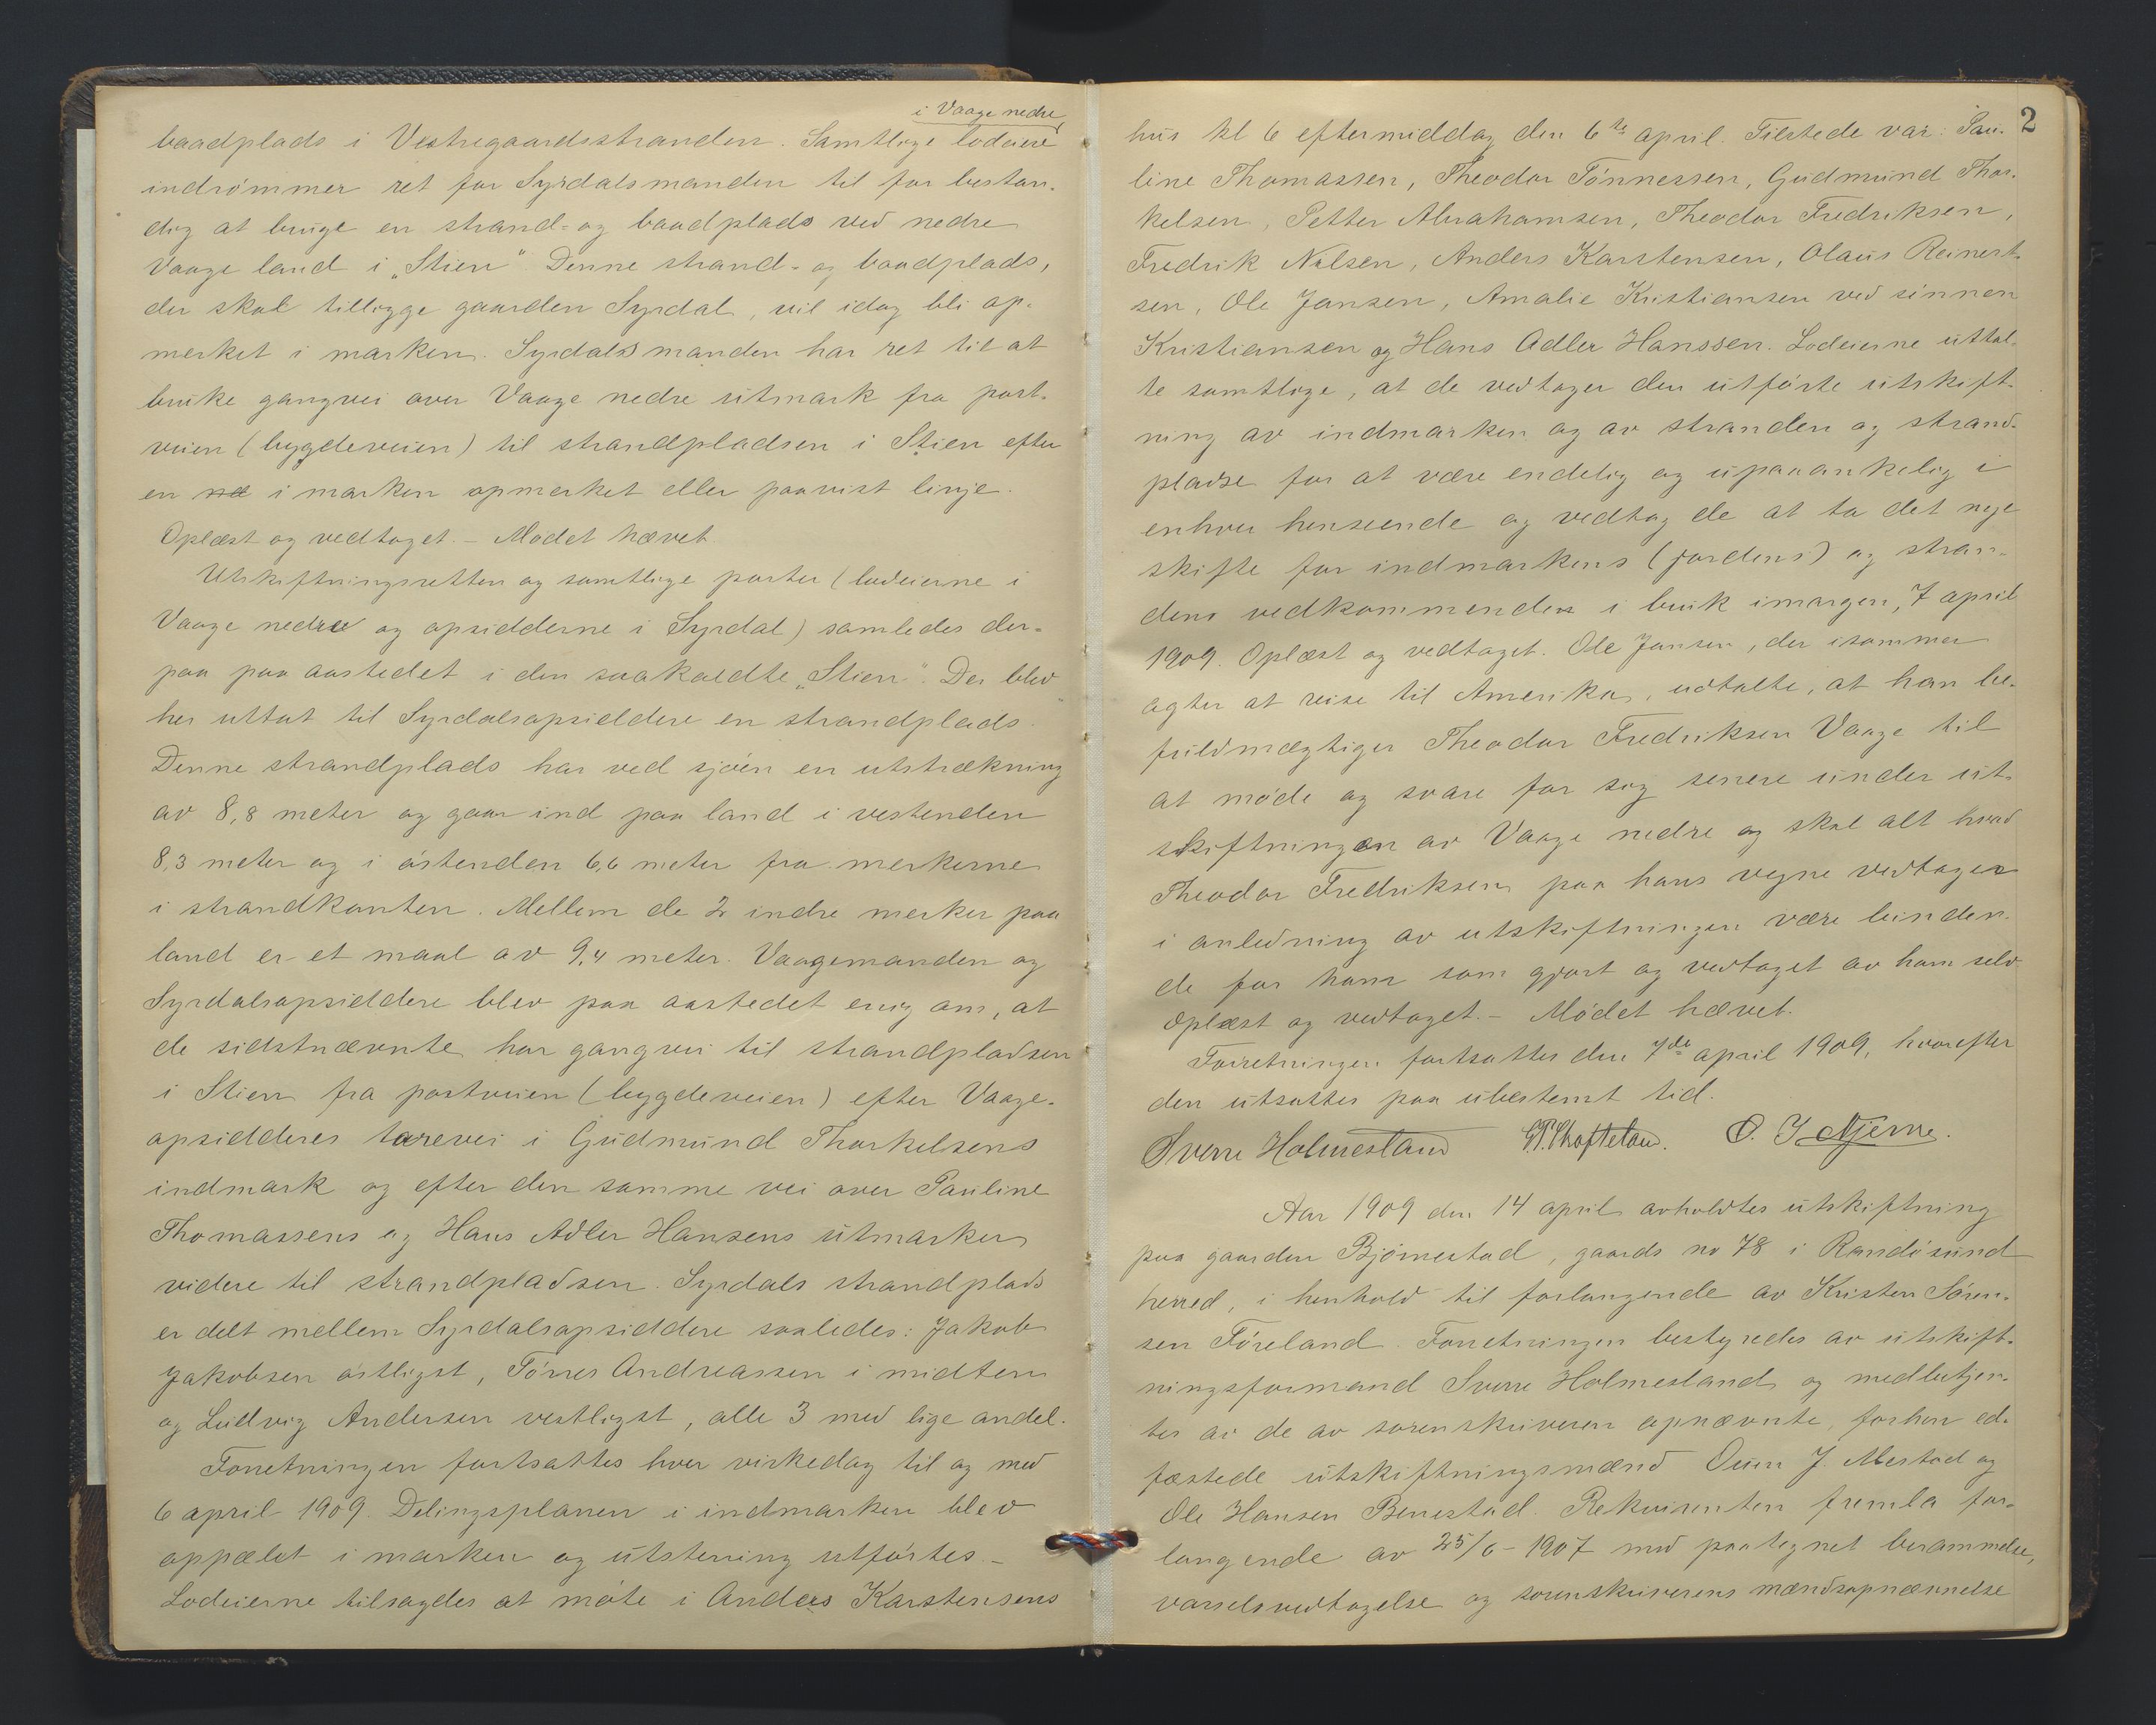 i Vaage nedre
baadplads i Vestregaardsstranden. Samtlige lodeiere
indrømmer ret for Syrdalsmanden til for bestan-
dig at bruge en strand- og baadplads ved nedre
Vaage land i „Stien“ Denne strand- og baadplads,
der skal tilligge gaarden Syrdal, vil idag bli op-
merket i marken. Syrdalsmanden har ret til at
bruke gangvei over Vaage nedre utmark fra post-
veien (bygdeveien) til strandpladsen i Stien efter
en i marken opmerket eller paavist linje.
Oplæst og vedtaget. – Mødet hævet.
Utskiftningsretten og samtlige parter (lodeierne i
Vaage nedre og opsidderne i Syrdal) samledes der-
paa paa aastedet i den saakaldte „Stien“. Der blev
her uttat til Syrdalsopsiddere en strandplads.
Denne strandplads har ved sjøen en utstrækning
av 8,8 meter og gaar ind paa land i vestenden
8,3 meter og i østenden 6,6 meter fra merkerne
i strandkanten. Mellem de 2 indre merker paa
land er et maal av 9,4 meter. Vaagemanden og
Syrdalsopsiddere blev paa aastedet enig om, at
de sidstnævnte har gangvei til strandpladsen
i Stien fra postveien (bygdeveien) efter Vaage-
opsidderes tarevei i Gudmund Thorkelsens
indmark og efter den samme vei over Pauline
Thomassens og Hans Adler Hansens utmarker
videre til strandpladsen. Syrdals strandplads
er delt mellem Syrdalsopsiddere saaledes: Jakob
Jakobsen østligst, Tørres Andreassen i midten
og Ludvig Andersen vestligst, alle 3 med lige andel.
Forretningen fortsattes hver virkedag til og med
6 april 1909. Delingsplanen i indmarken blev
oppælet i marken og utstening utførtes. –
Lodeierne tilsagdes at møte i Anders Karstensens
2
hus kl 6 eftermiddag den 6te april. Tilstede var: Pau-
line Thomassen, Theodor Tønnessen, Gudmund Thor-
kelsen, Petter Abrahamsen, Theodor Fredriksen,
Fredrik Nilsen, Anders Karstensen, Olaus Reinert-
sen, Ole Jansen, Amalie Kristiansen ved sønnen
Kristiansen og Hans Adler Hanssen. Lodeierne uttal-
te samtlige, at de vedtager den utførte utskift-
ning av indmarken og av stranden og strand-
pladse for at være endelig og upaaankelig i
enhver henseende og vedtag de at ta det nye
skifte for indmarkens (jordens) og stran-
dens vedkommende i bruk imorgen, 7 april
1909. Oplæst og vedtaget. Ole Jansen, der isommer
agter at reise til Amerika, udtalte, at han be-
fuldmægtiger Theodor Fredriksen Vaage til
at møde og svare for sig senere under ut-
skiftningen av Vaage nedre og skal alt hvad
Theodor Fredriksen paa hans vegne vedtager
i anledning av utskiftningen være binden-
de for ham som gjort og vedtaget av ham selv
Oplæst og vedtaget. – Mødet hævet.
Forretningen fortsattes den 7de april 1909, hvorefter
den utsattes paa ubestemt tid.
Sverre Holmesland O. J.
Aar 1909 den 14 april avholdtes utskiftning
paa gaarden Bjørnestad, gaards no 78 i Randøsund
herred, i henhold til forlangende av Kristen Søren-
sen Føreland. Forretningen bestyredes av utskift-
ningsformand Sverre Holmesland og medbetjen-
tes av de av sorenskriveren opnævnte, forhen ed-
fæstede utskiftningsmænd Oven J. Mestad og
Ole Hansen Benestad. Rekvirenten fremla for-
langende av 25/6 - 1907 med paategnet berammelse,
varselsvedtagelse og sorenskriverens mændsopnævnelse